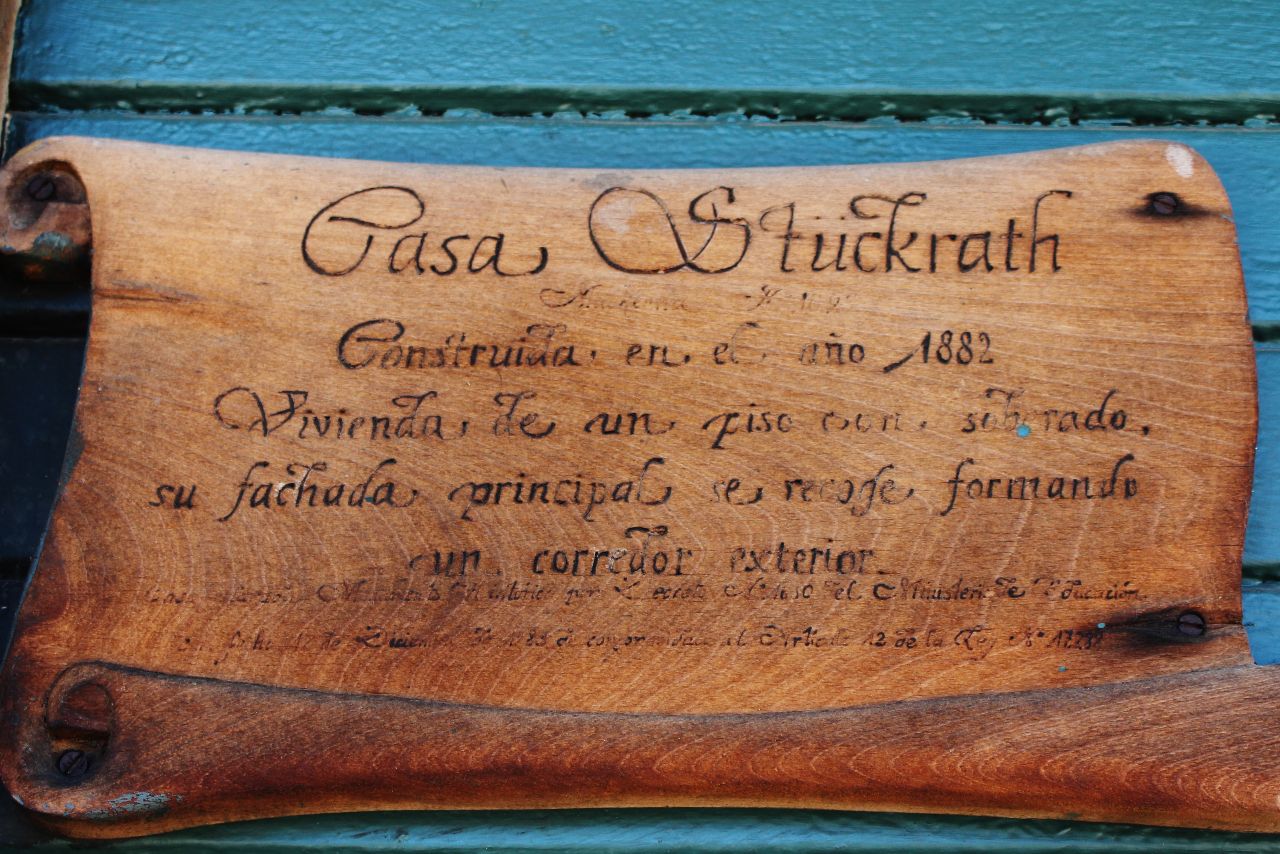 Casa Stückrath
Construida en el año 1882
Vivienda de un piso con soberado,
su fachada principal se recoge formando
un corredor exterior.
Casa Monumento Histórico por Decreto del Ministerio de Educación
de Diciembre de conformidad al Artículo 12 de la Ley Nº 17.288